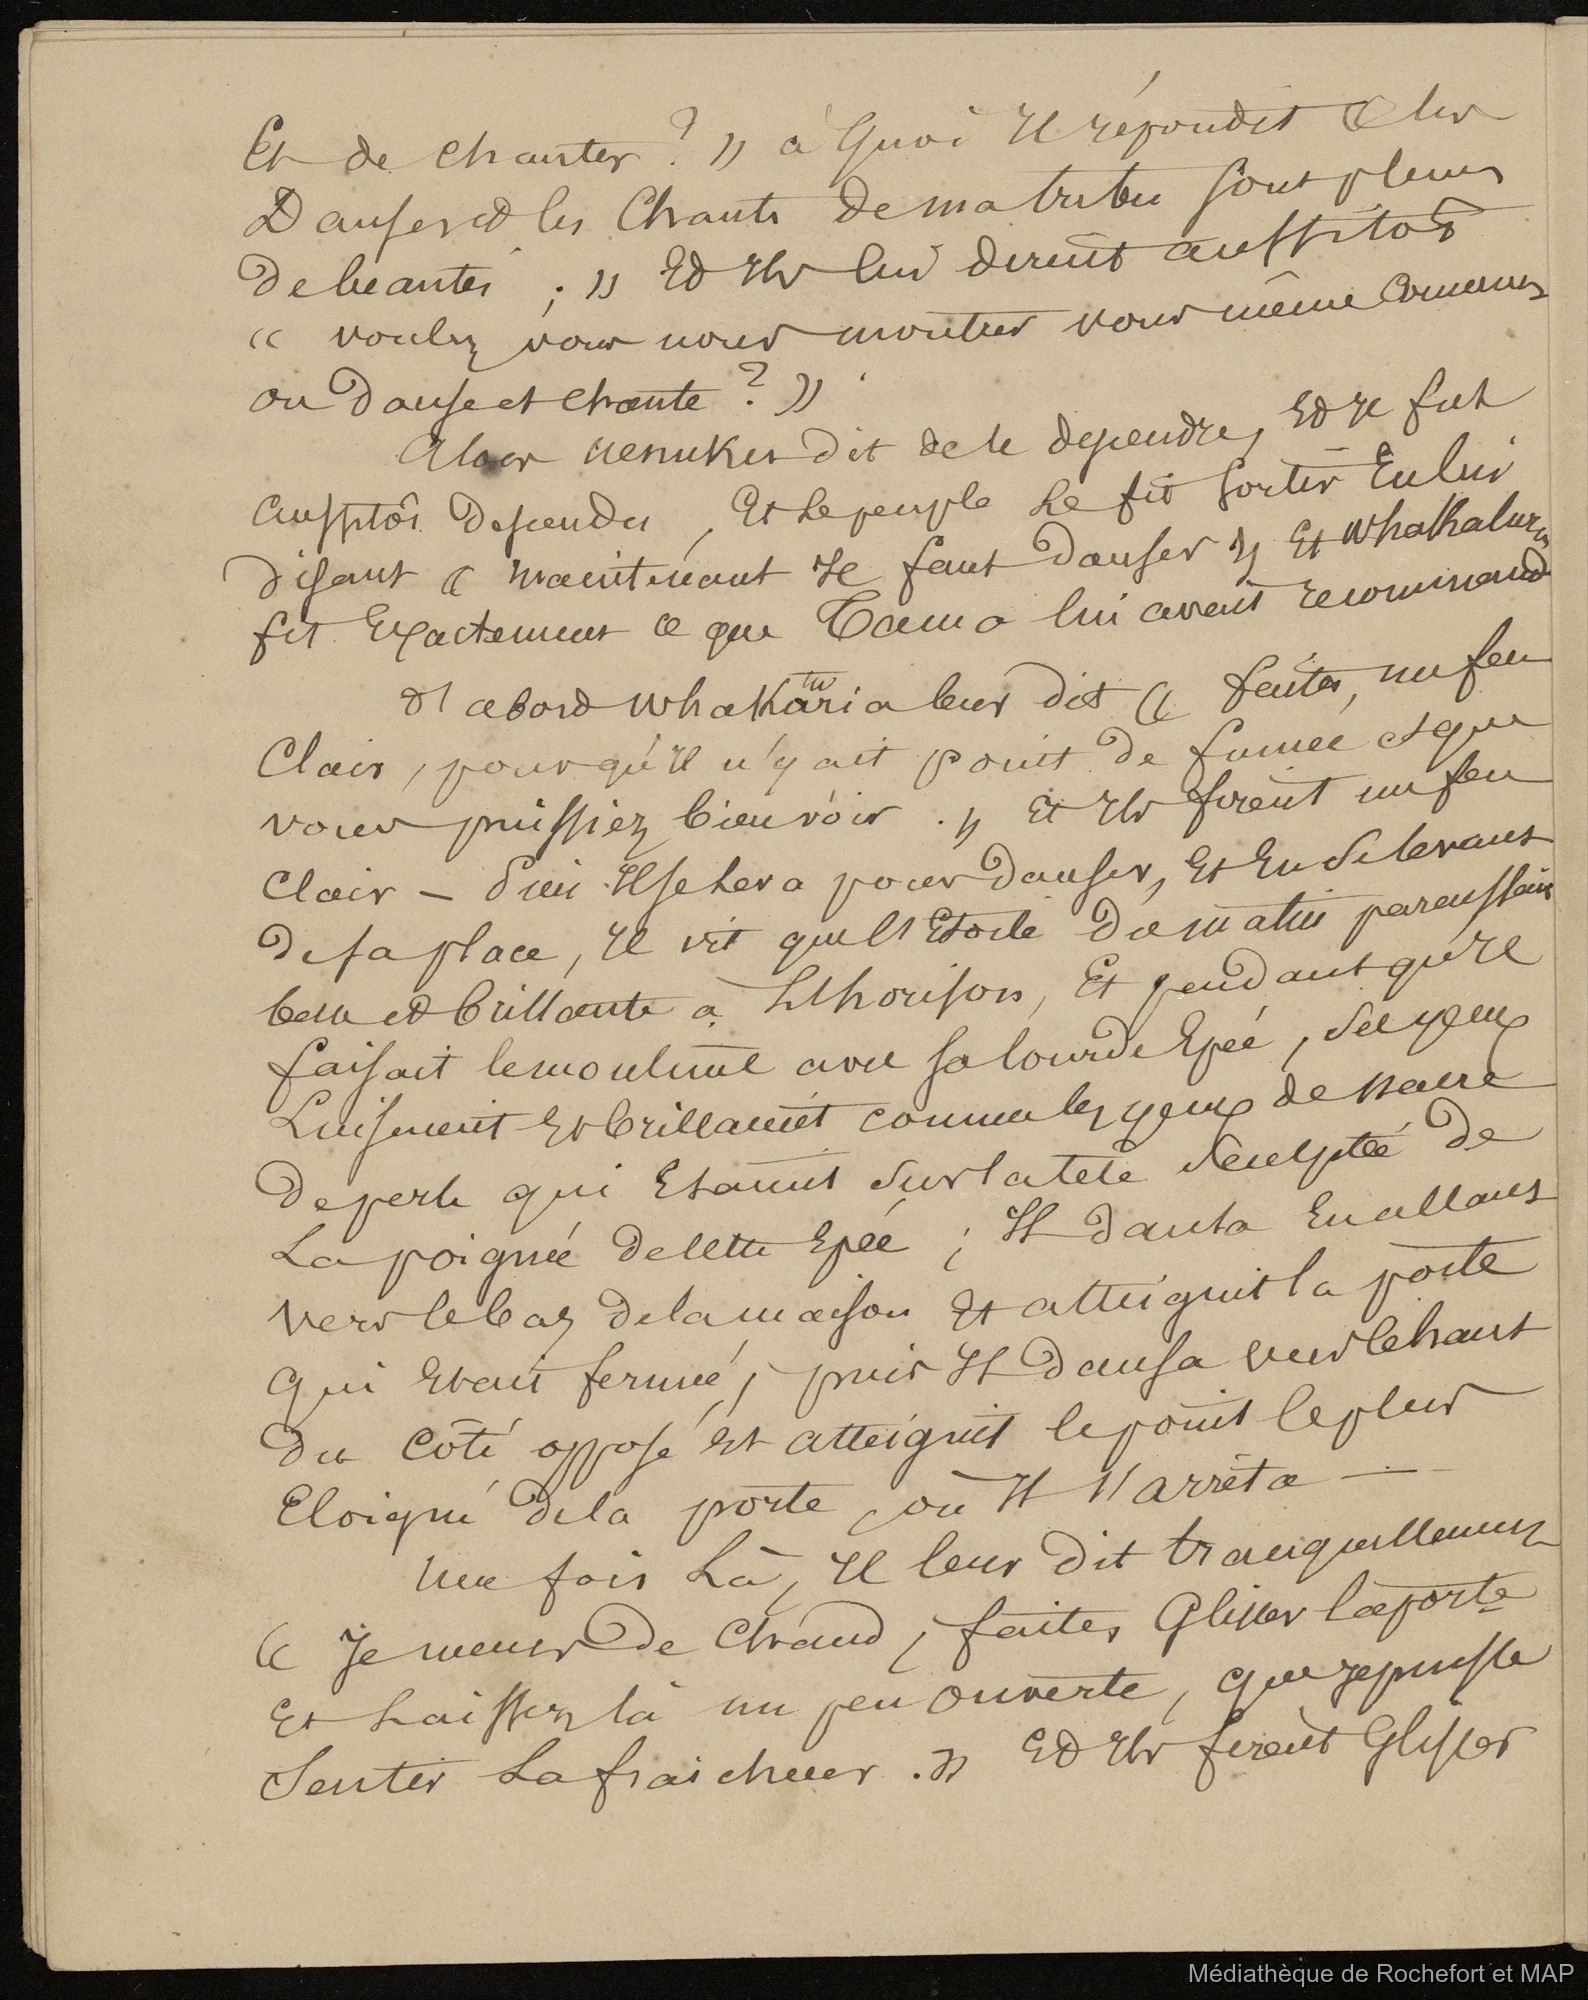 Et de chanter ? » à quoi Il répondit « les
Danses et les Chants de ma tribu sont pleins
de beautés ; » Et Ils lui dirent aussitôt
« voulez vous nous montrer vous même comment
on danse et chante ? »
Alors uenukus dit de le dépendre, Et Il fut
aussitôt dépendu, Et le peuple le fit sortir En lui
disant « maintenant Il faut danser » Et Whakaturia
fit Exactement ce que Tama lui avait recommandé
d'abord Whakaturia leur dit « faites, un feu
Clair, pour qu'Il n'y ait point de fumée et que
vous puissiez bien voir . » Et Ils firent un feu
Clair – Puis Il se leva pour danser, Et En se levant
de sa place, Il vit que l'Etoile du matin paraissait
belle et brillante à L'horison, Et pendant qu'Il
faisait le moulinet avec sa lourde Epée, ses yeux
Luisaient Et brillaient comme les yeux de nacre
de perle qui Etaient sur la tête sculptée de
La poignée de cette Epée ; Il dansa En allant
vers le bas de la maison Et atteignit la porte
qui Etait fermée, puis Il dansa vers le haut
du côté opposé Et atteignit le point le plus
Eloigné de la porte, où Il s'arrêta —
Une fois Là, Il leur dit tranquillement
« Je meurs de chaud, faites Glisser la porte
Et Laissez là un peu ouverte, que je puisse
Sentir La fraicheur . » Et Ils firent Glisser
Médiathèque de Rochefort et MAP